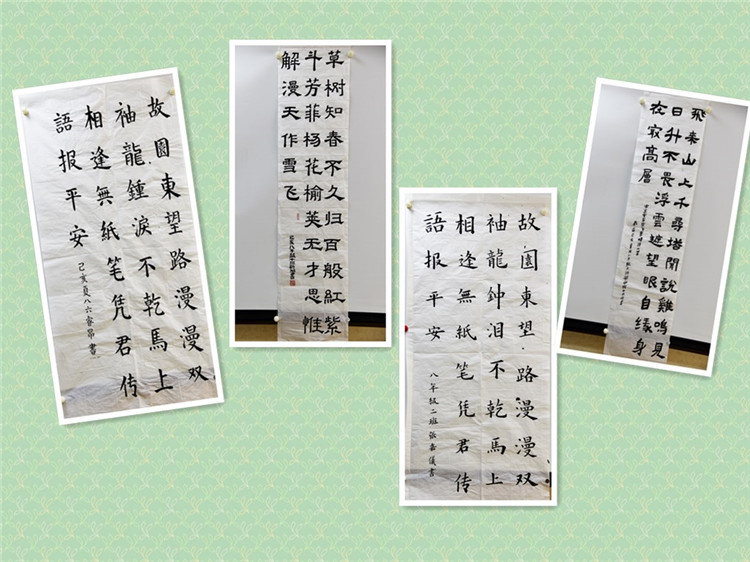 故園東望路漫漫双
袖龍鍾淚不乾馬上
相逢無紙笔凭君传
語报平安
己亥夏八六睿昂書
草树知春不久归百般紅紫
斗芳菲杨花榆荚王才思惟
解漫天作雪飞
故園東望路漫漫双
袖龍鈡泪不乾馬上
相逢無紙笔凭君传
語报平安
八年級二班張嘉儀書
飛来山上千尋塔聞說雞鳴見
日升不畏浮雲遮望眼自缘身
在寂高層